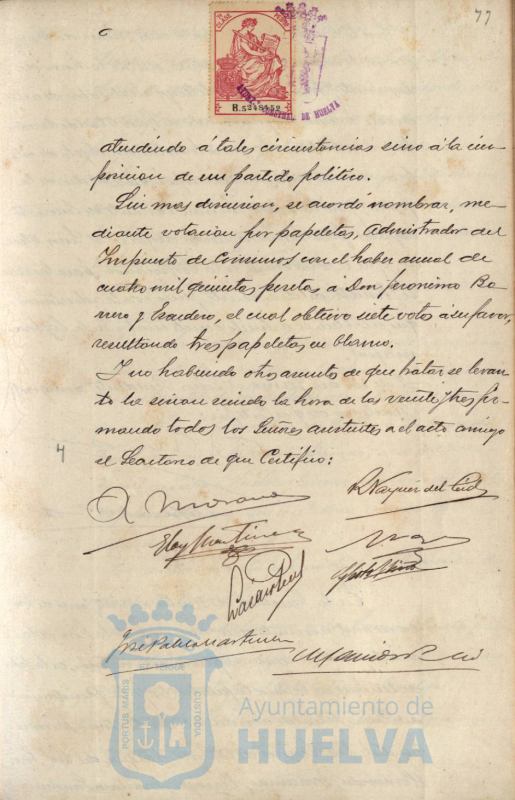 77
R.5248452
AYUNTº CONSTNAL DE HUELVA
atendiendo á tales circunstancias sino á la im-
posicion de un partido político.
Sin mas discusion, se acordó nombrar, me
diante votacion por papeletas, Administrador del
Impuesto de Consumos con el haber anual de
cuatro mil quinientas pesetas á Don Jeronimo Ba
rrero y Escudero, el cual obtuvo siete votos á su favor,
resultando tres papeletas en blanco.
Y no habiendo otros asuntos de que tratar se levan
tó la sesion siendo la hora de las veinte y tres fir-
mando todos los Señores asistentes a el acto conmigo
el Secretario de que Certifico:
A Moreno
R. Vazquez del Cid
Eloy Martinez
José Pablo Martinez
PORTUS MARIS ET TERRAE CUSTODIA
Ayuntamiento de
HUELVA